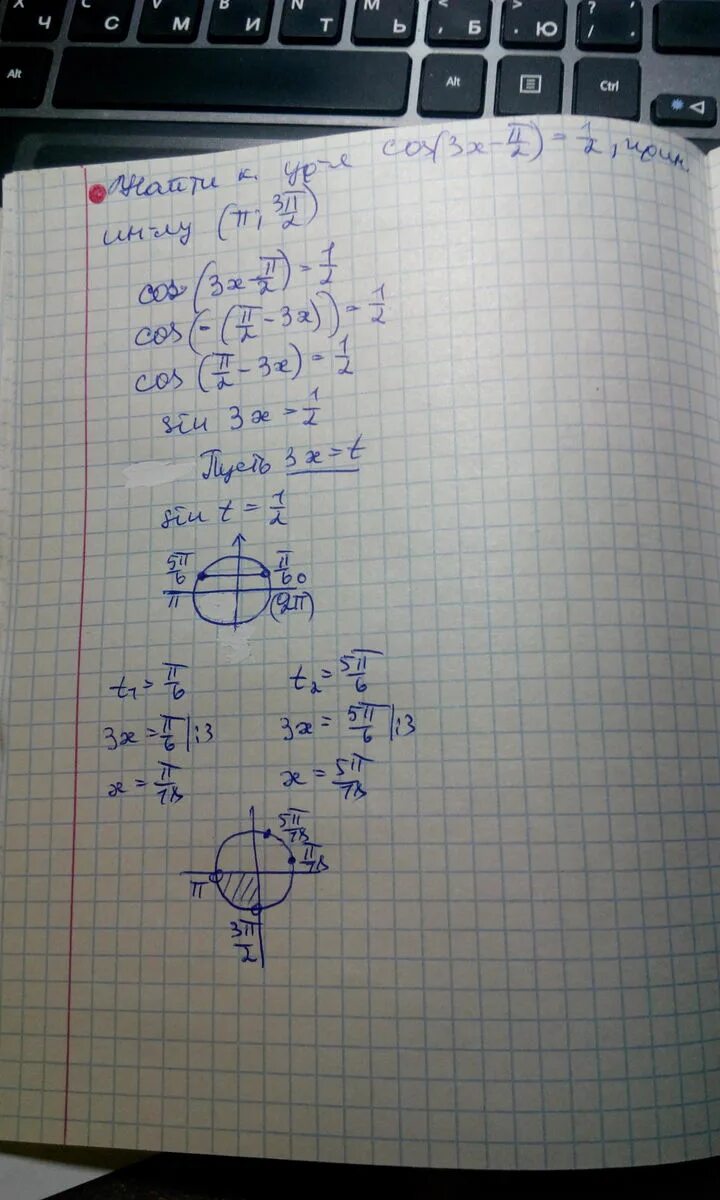 Х Ч
С
М И
N Т
M Ь
< , Б
> . Ю
? / .
Alt
Alt
Ctrl
Найти к. ур-я cos(3x - π/2) = 1/2, прин.
ин-лу (π; 3π/2)
cos(3x - π/2) = 1/2
cos(-(π/2 - 3x)) = 1/2
cos(π/2 - 3x) = 1/2
sin 3x = 1/2
Пусть 3x = t
sin t = 1/2
5π/6 π/6
π 0
(2π)
t₁ = π/6 t₂ = 5π/6
3x = π/6 | :3 3x = 5π/6 | :3
x = π/18 x = 5π/18
5π/18
π/18
π
3π/2